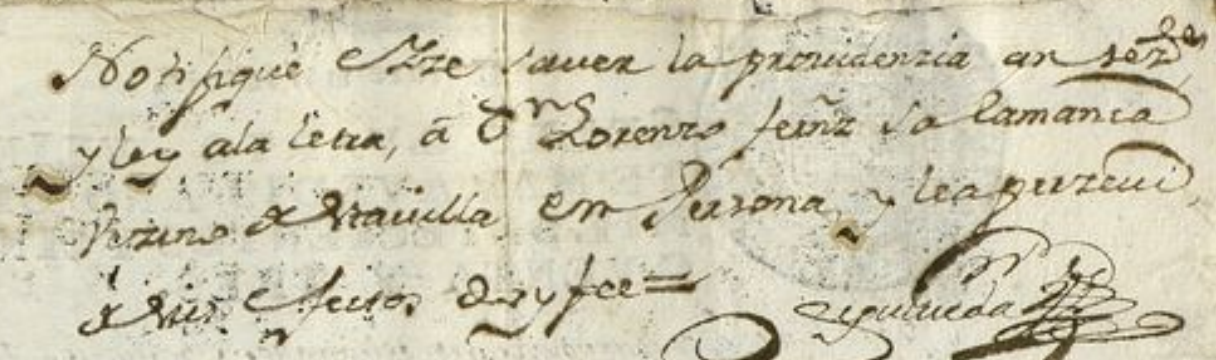 Notifiqué e Hize saver la providenzia an sez.te
y ley ala letra, â Dn Lorenzo ferñz Salamanca
Vezino de esta villa en Persona, y le aperzevi
de sus efectos doy fee =
Sepulveda